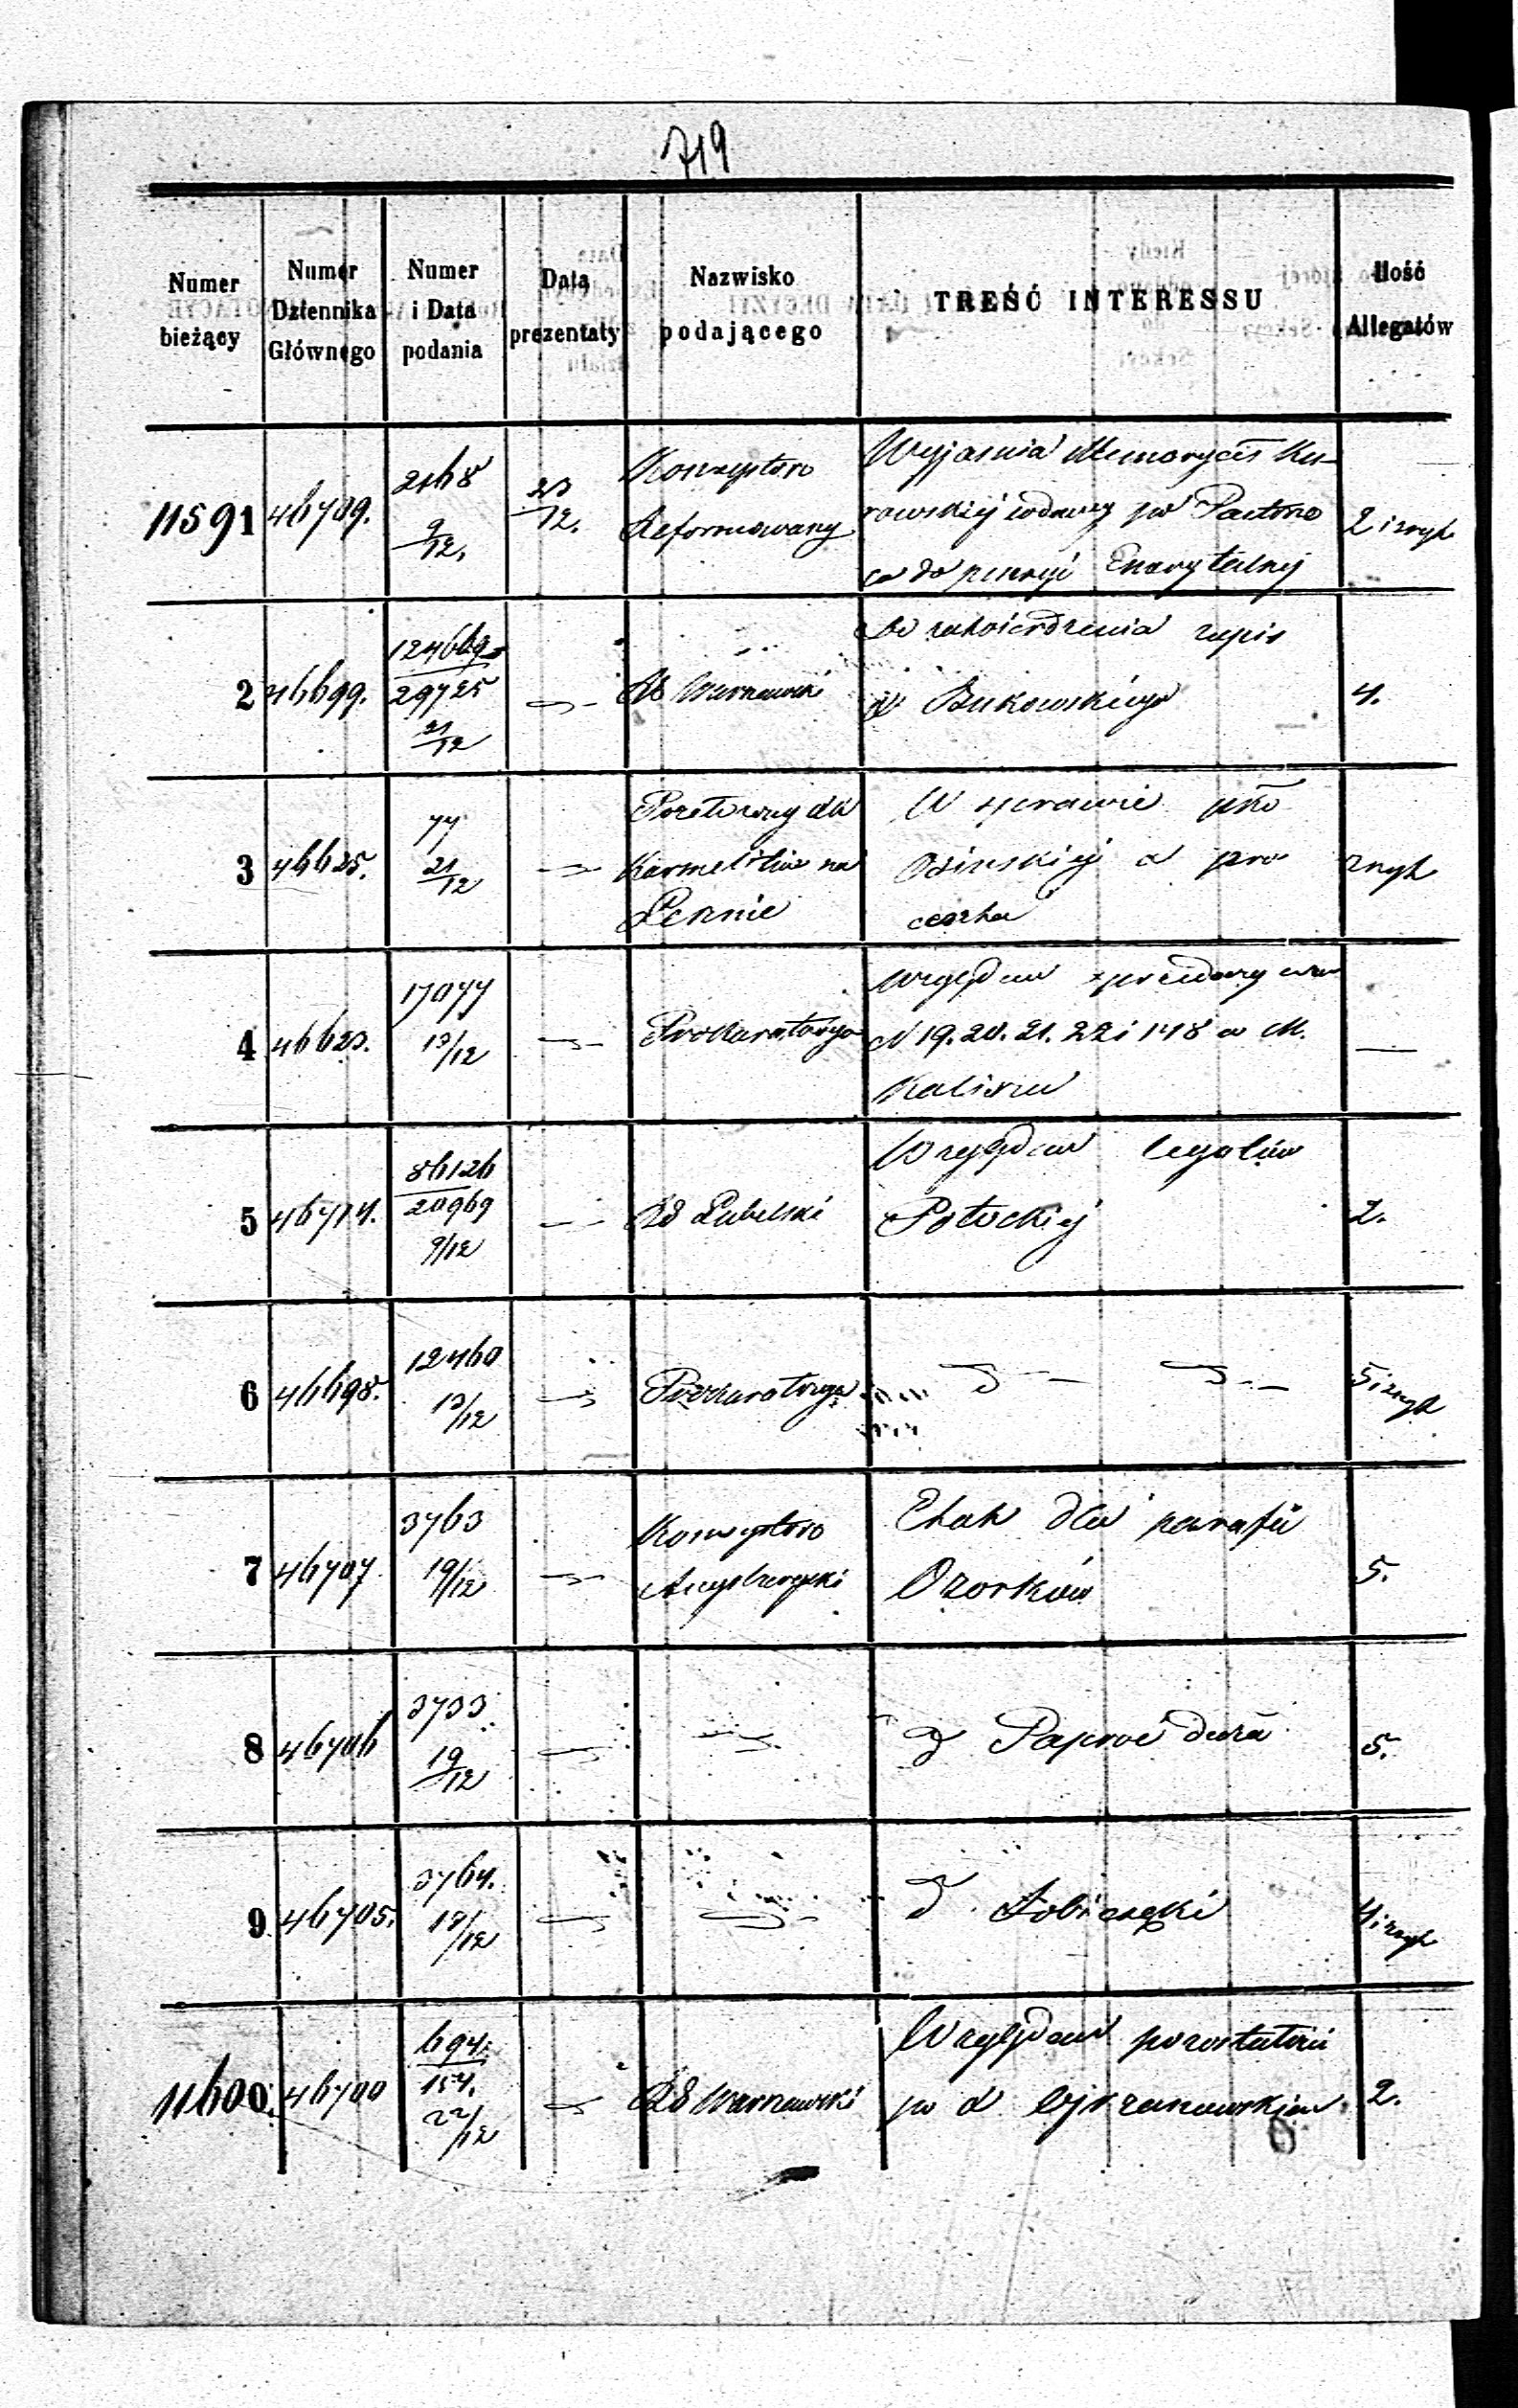 719
Numer bieżący
Numer Dziennika Głównego
Numer i Data podania
Data prezentaty
Nazwisko podającego
TREŚĆ INTERESSU
Ilość Allegatów
11591 46709. 2168 9/12. 23/12. Konsystorz Reformowany
Wyjaśnia Ku-
rowskiej wdowy po Pastorze
co do pensyi Emerytalnej
2 i
2 46699. 124669 29725 21/12 Warszawski
Do zatwierdzenia zapis
Bukowskiego
4.
3 46625. 77 21/12
Karmelitów na
Lesznie
W sprawie pko
Osinskiej o pro
centa
4 46623. 17077 13/12 Prokuratorya
Względem sprzedaży
N 19. 20. 21. 22 i 148 w M.
Kaliszu
—
5 46714. 86126 20969 9/12 Rd Lubelski
Względem legatów
Potockiej
2.
6 46698. 12460 13/12 Prokuratorya
5 i
7 46707 3763 19/12 Konsystorz
Etat dla parafii
Ozorków
5.
8 46706 3733 19/12
d Paproć duża
5.
9 46705. 3764. 19/12
d
4 i
11600. 46700 694. 154. 22/12 Rd Warszawski
Względem
po X
2.